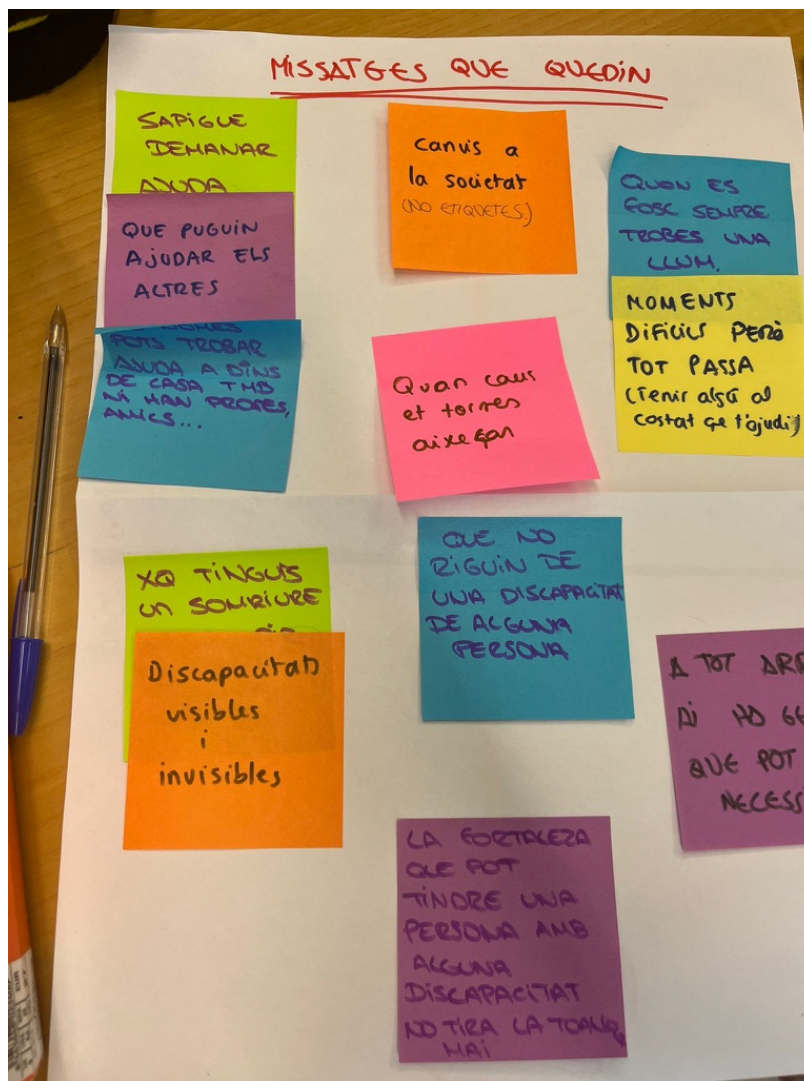 MISSATGES QUE QUEDIN
SAPIGUE
DEMANAR
AJUDA
QUE PUGUIN
AJUDAR ELS
ALTRES
NOMES
POTS TROBAR
AJUDA A DINS
DE CASA TMB
NI HAN PROFES,
AMICS...
Canvis a
la societat
(NO ETIQUETES)
QUAN ES
FOSC SEMPRE
TROBES UNA
LLUM.
MOMENTS
DIFICILS PERÒ
TOT PASSA
(Tenir algú al
costat qe t'ajudi)
Quan caus
et tornes
aixeçar
XQ TINGUIS
UN SOMRIURE
Discapacitats
visibles
i
invisibles
QUE NO
RIGUIN DE
UNA DISCAPACITAT
DE ALGUNA
PERSONA
A TOT ARR
HO
QUE POT
NECESS
LA FORTALEZA
QUE POT
TINDRE UNA
PERSONA AMB
ALGUNA
DISCAPACITAT
NO TIRA LA TOALLA
MAI